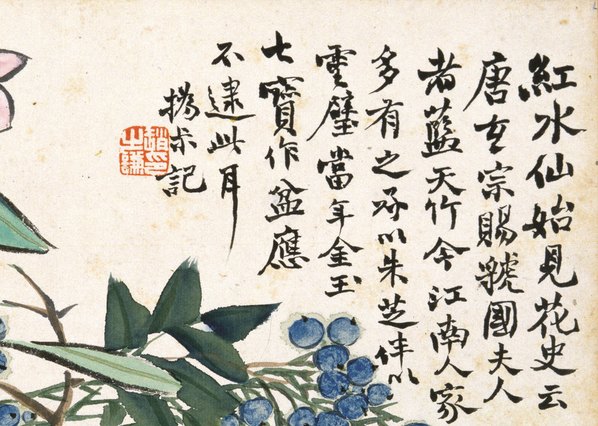 紅水仙始見花史云
唐玄宗賜虢國夫人
者藍天竹今江南人家
多有之承以朱芝伴以
靈璧當年金玉
七寶作盆應
不逮此耳
撝尗記
趙印之謙